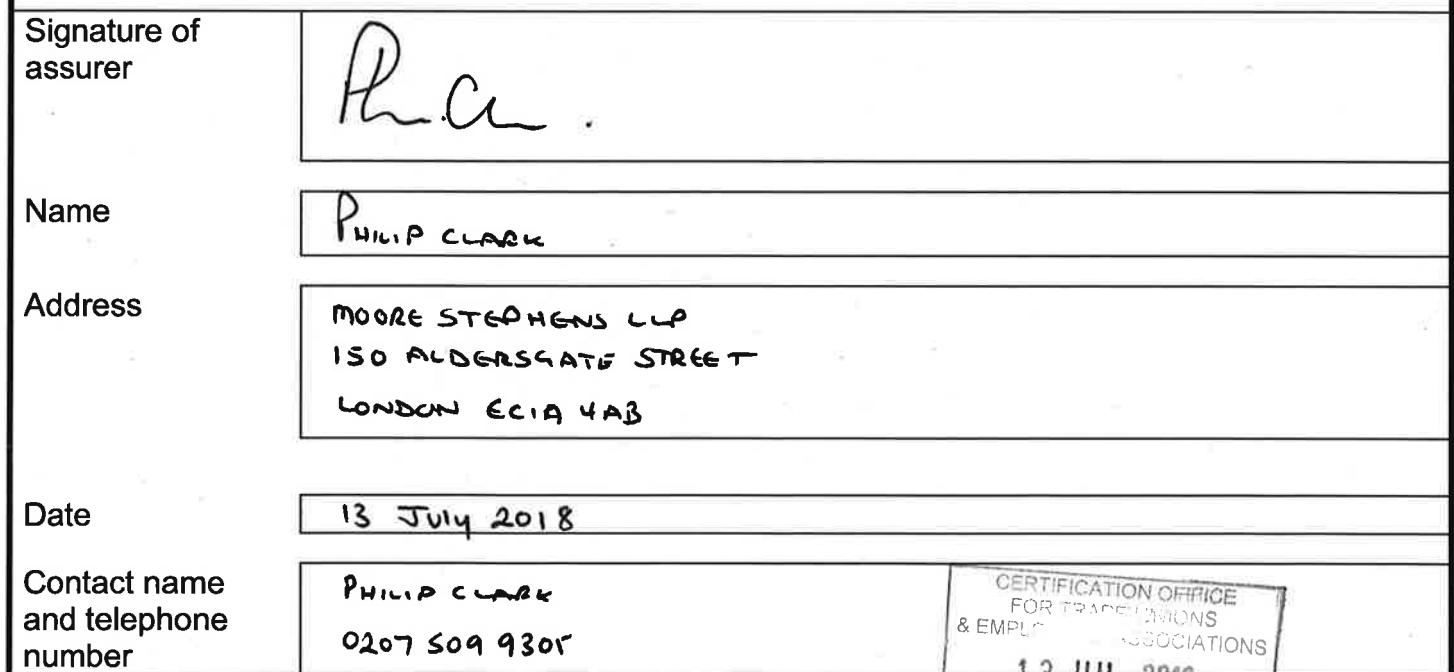 Signature of
assurer
Name
PHILIP CLARK
Address
MOORE STEPHENS LLP
150 ALDERSGATE STREET
LONDON EC1A 4AB
Date
13 July 2018
Contact name
and telephone
number
PHILIP CLARK
0207 509 9305
CERTIFICATION OFFICE
FOR TRADE UNIONS
& EMPL ASSOCIATIONS
JUL